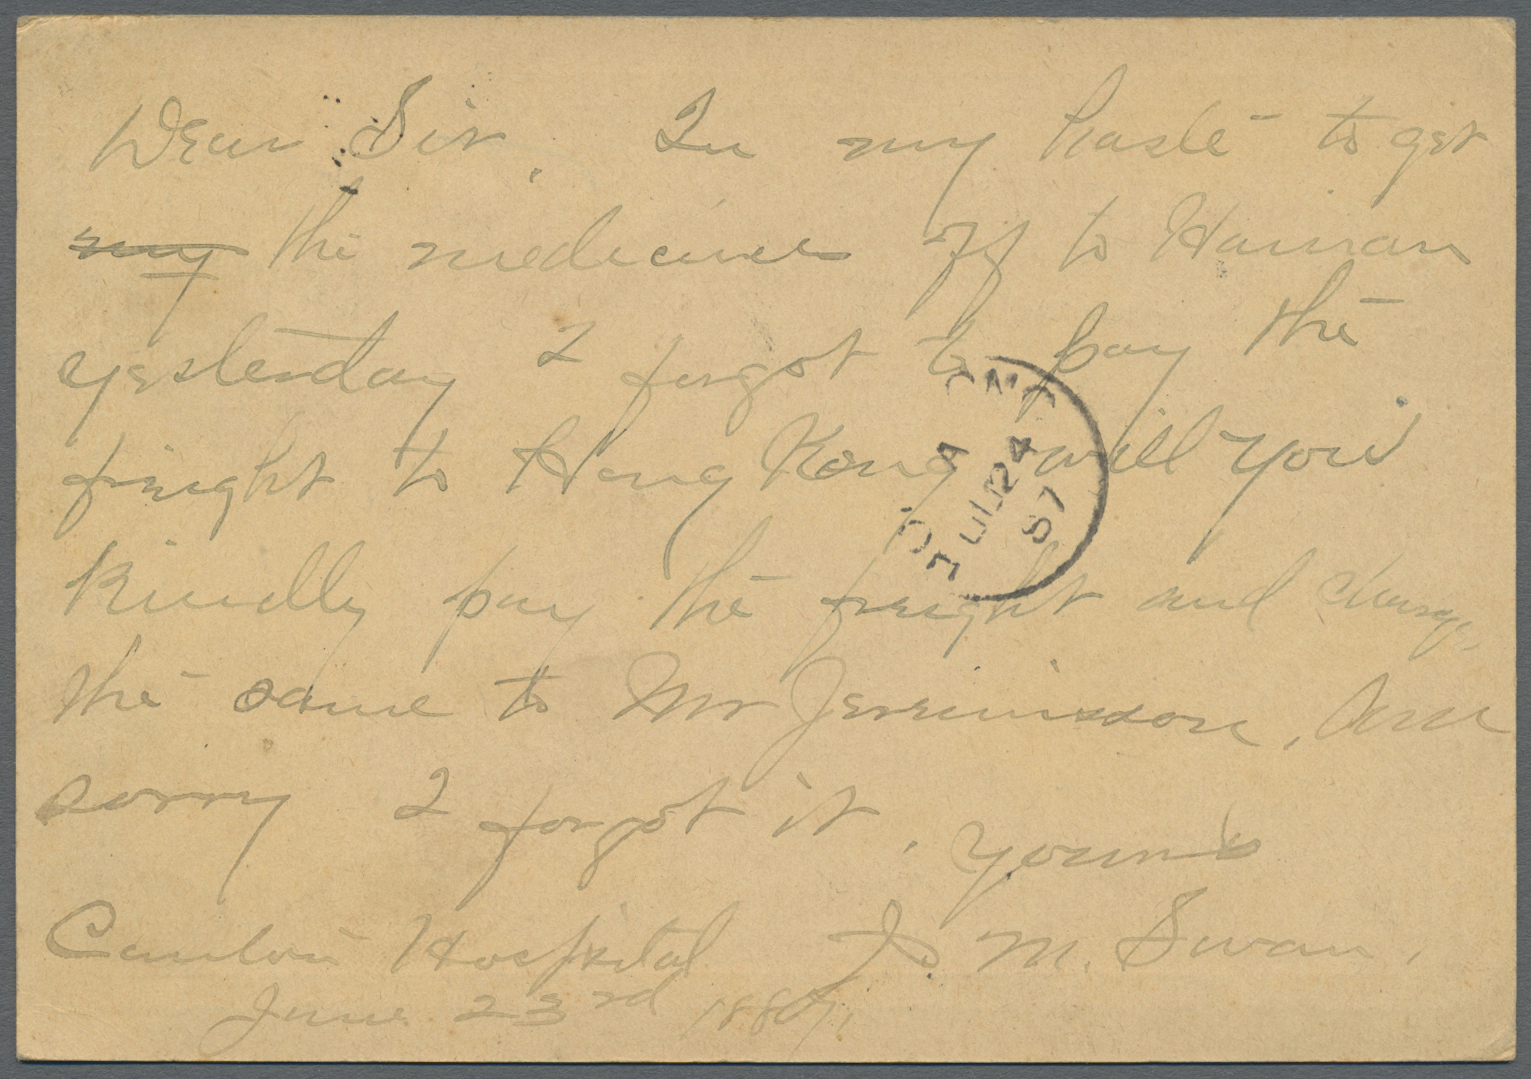 Dear Sir. In my haste to get
my the medicines off to Hainan
yesterday I forgot to pay the
freight to Hong Kong will you
Kindly pay the freight and charge
the same to Mr Jeremiassen, Am
sorry I forgot it. Yours
Canton Hospital J. M. Swan.
June 23rd 1887.
A
JU 24
87